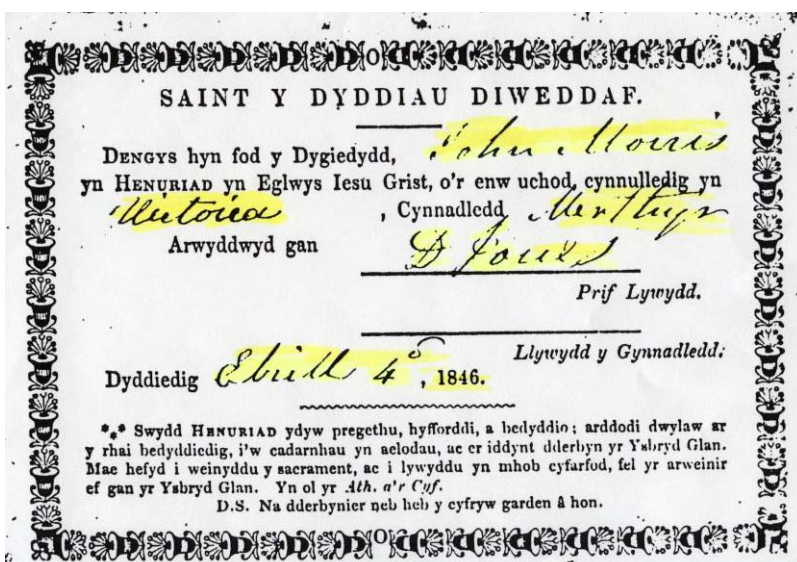 SAINT Y DYDDIAU DIWEDDAF.
DENGYS hyn fod y Dygiedydd, John Morris
yn HENURIAD yn Eglwys Iesu Grist, o'r enw uchod, cynnulledig yn
Victoria , Cynnadledd Merthyr
Arwyddwyd gan D Jones
Prif Lywydd.
Llywydd y Gynnadledd;
Dyddiedig Ebrill 4º, 1846.
*⁎* Swydd HENURIAD ydyw pregethu, hyfforddi, a bedyddio; arddodi dwylaw ar
y rhai bedyddiedig, i'w cadarnhau yn aelodau, ac er iddynt dderbyn yr Ysbryd Glan.
Mae hefyd i weinyddu y sacrament, ac i lywyddu yn mhob cyfarfod, fel yr arweinir
ef gan yr Ysbryd Glan. Yn ol yr Ath. a'r Cyf.
D.S. Na dderbynier neb heb y cyfryw garden â hon.